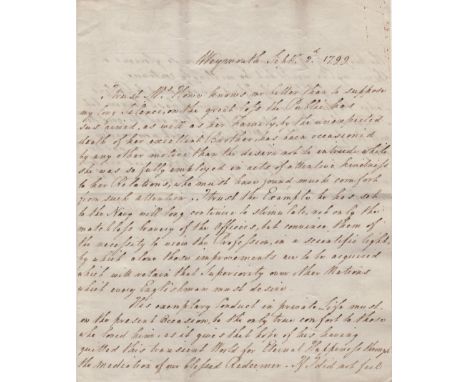 Weymouth Septr. 2d. 1799
I trust Mrs. Howe knows me better than to suppose
my long silence, on the great loss the Public has
sustained, as well as her Family, by the unexpected
death of her excellent Brother, has been occasioned
by any other motive than the desire not to intrude while
she was so fully employed in acts of attentive kindness
to her Relations, who must have found much comfort
from such attention. I trust the Example he has set
to the Navy will long continue to stimulate not only the
matchless bravery of the Officers, but convince them of
the necessity to view the Profession in a scientific light,
by which alone those improvements are to be acquired
which will retain that Superiority over other Nations
which every Englishman must desire.
His exemplary Conduct in private Life must
on the present occasion, be the only true comfort to those
who loved him, as it gives that hope of his having
quitted this transient World for Eternal Happiness through
the mediation of our Blessed Redeemer. If I did not feel